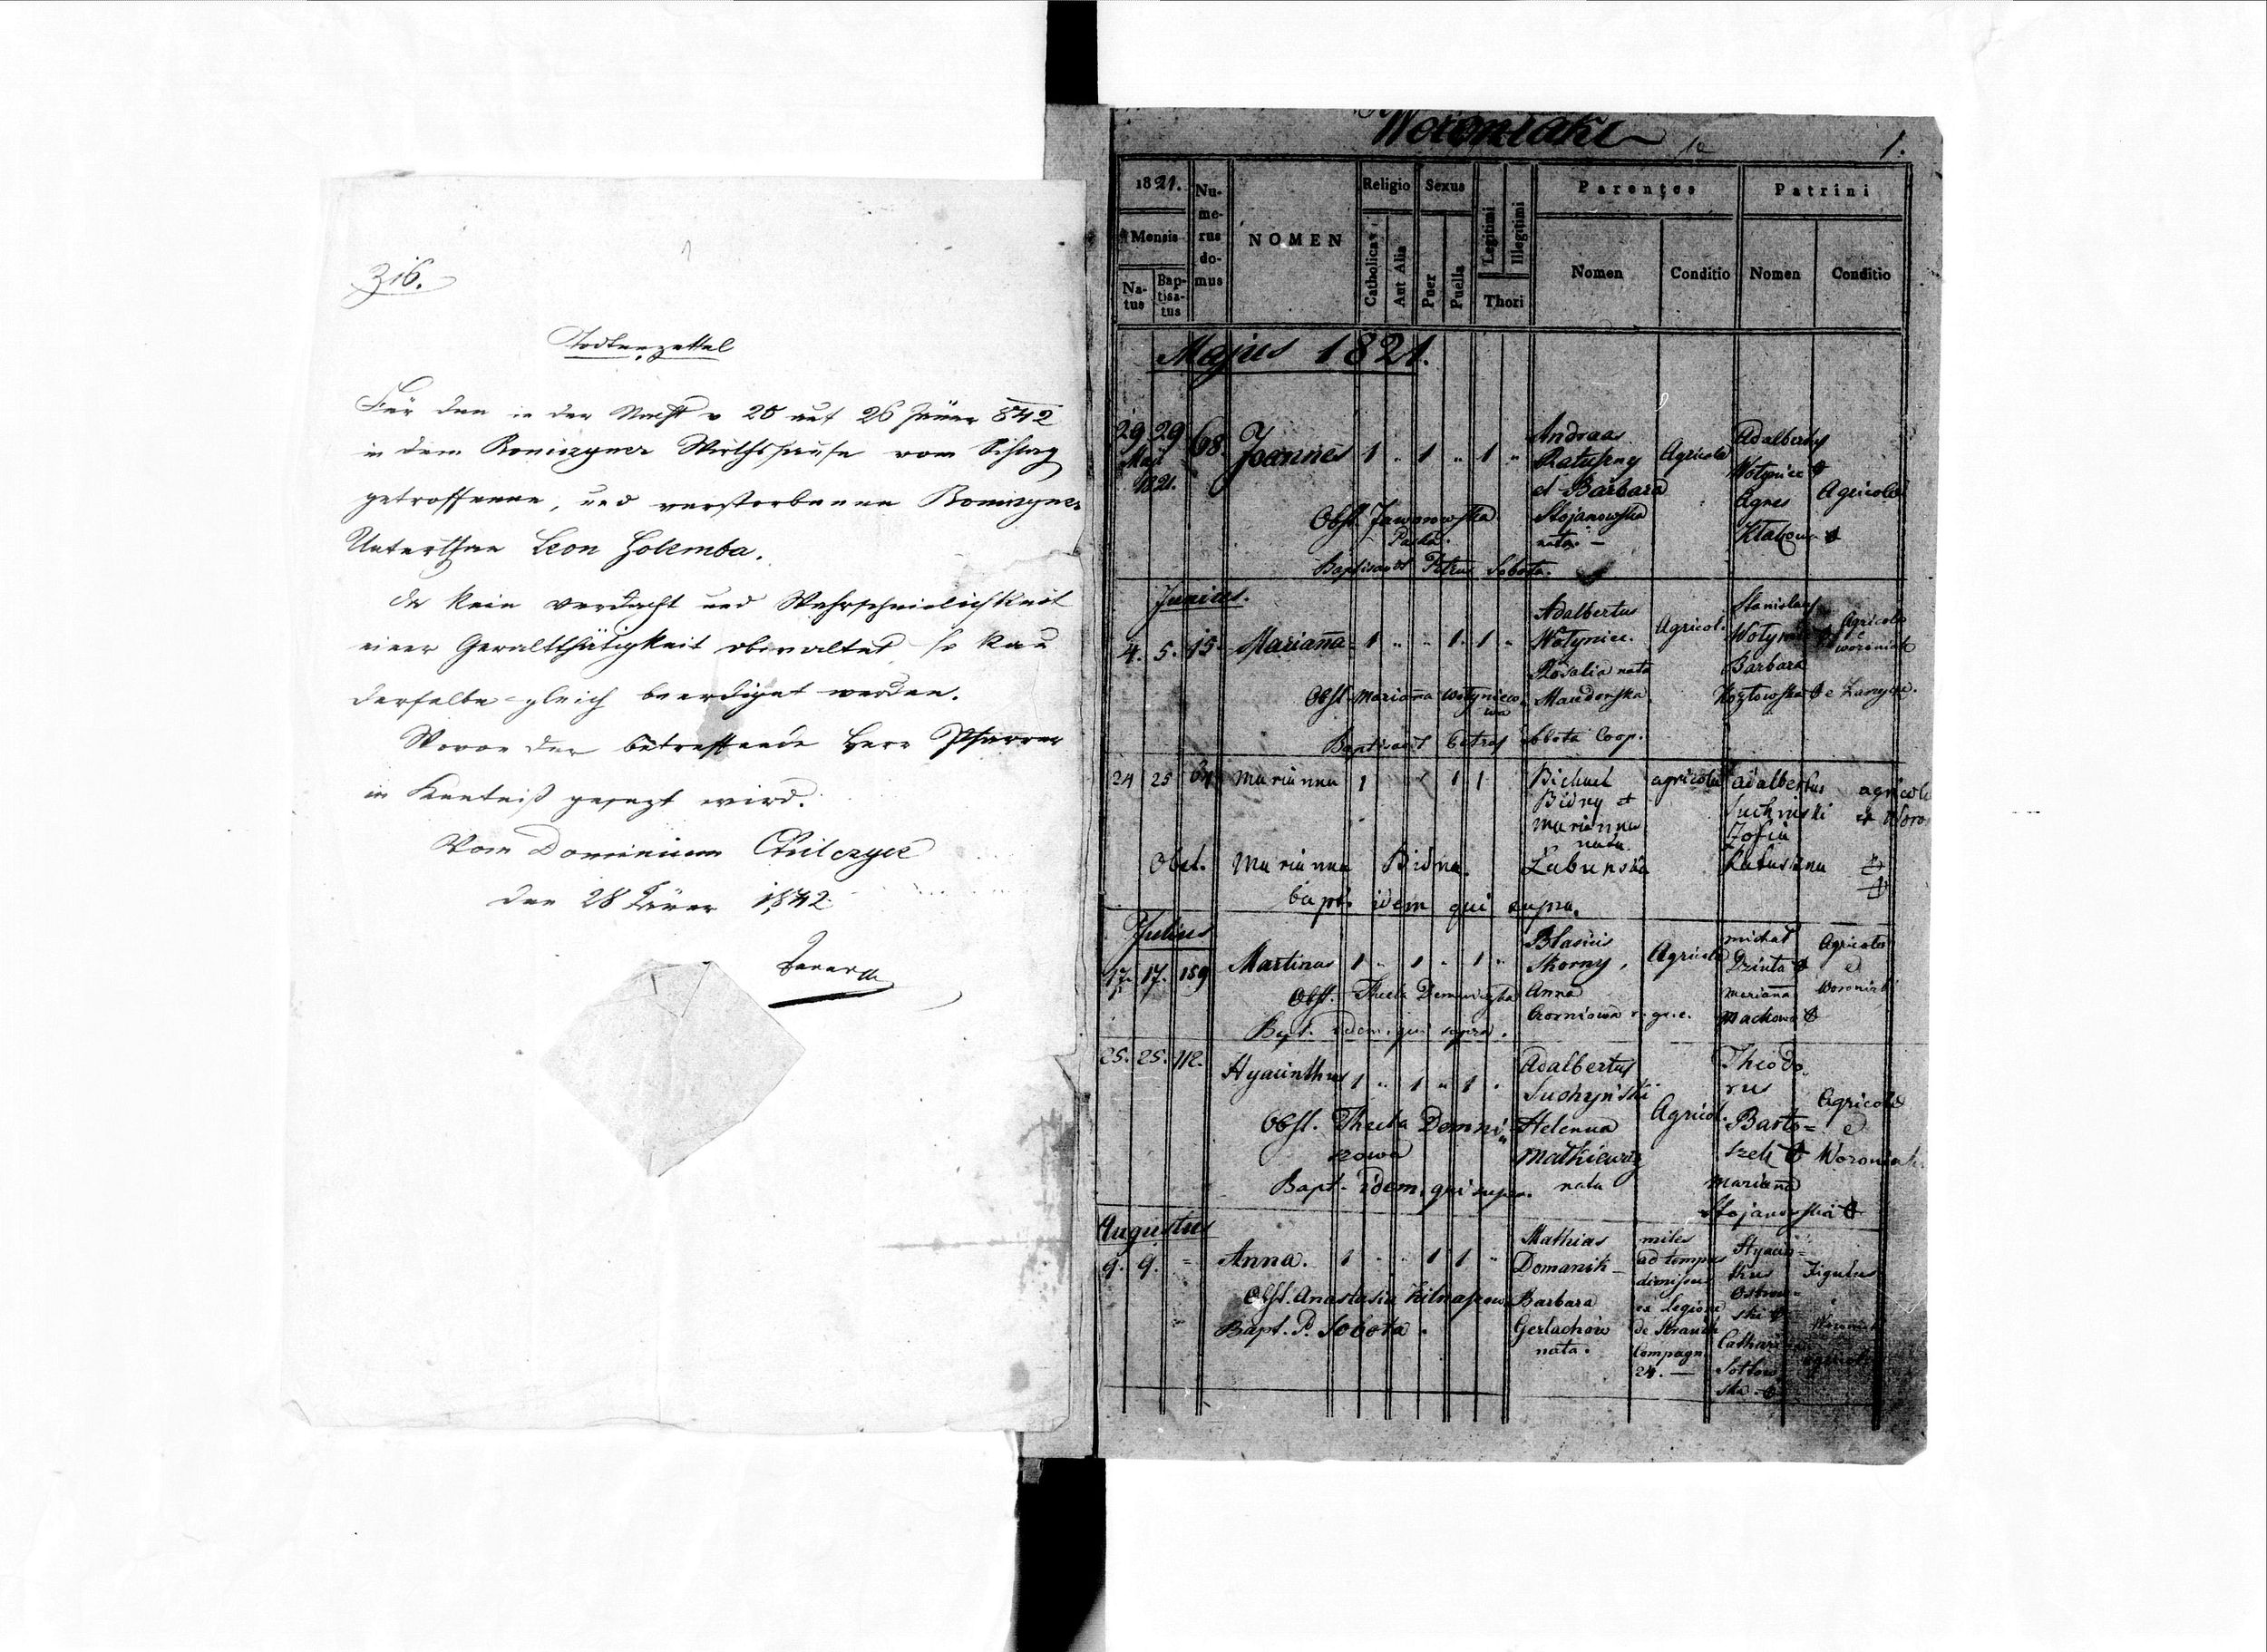 316.
Todtenzettel
Für den in der Nacht v 25 auf 26 Jäner 842
in dem Wirthshause vom Schlag
getroffenen, und verstorbenen
Unterthan Leon Golemba.
Da kein Verdacht und Wahrscheinlichkeit
einer Gewaltthätigkeit obwaltet so kan
derselbe gleich beerdiget werden.
Wovon der betreffende Herr Pfarrer
in Kentniß gesezt wird.
Vom Dominium
den 28 Jäner 1842
Woroniaki
1.
1821.
Mensis
Natus
Baptisatus
Numerus domus
NOMEN
Religio
Catholica
Aut Alia
Sexus
Puer
Puella
Legitimi
Illegitimi
Thori
Parentes
Nomen
Conditio
Patrini
Nomen
Conditio
Majus 1821.
29 29 68. Joannes 1 " 1 " 1 "
Maji
1821.
Andreas
Ratuszny
et Barbara
Stojanowska
nata. —
Agricola
Adalbertus
Wołyniec
Agnes
Agricola
Obst. Jaworowska
Baptisavit Petrus Sobota.
Junius.
4. 5. 15. Marianna 1 " " 1. 1 "
Adalbertus
Wołyniec.
Rosalia nata
Agricol.
Stanislaus
Barbara
Kozłowska
Agricola
e
Obst. Marianna
Baptisavit Petrus Sobota Coop.
24 25 Marianna 1 1 1
Bidny et
Marianna
nata
Łabunska
agricola
Adalbertus
Suchinski
Zofia
Ratuszna
agricola
Obst. Marianna Bidna.
bapt. idem qui supra.
Julius
17. 17. 159 Martinus 1 " 1 " 1 "
Blasius
Skorny,
Anna
Agricola
Michał
Marianna
Agricola
e
Obst. Thecla
Bapt. idem qui supra.
25. 25. 112. Hyacinthus 1 " 1 " 1 "
Adalbertus
Suchyński
Helenna
Mathiewicz
nata
Agricol.
Theodo-
rus
Barto=
szek
Marianna
Stojanowska
Agricola
e
Woroniak
Obst. Thecla Domni=
szowa
Bapt. idem qui supra.
Augustus
9. 9. " Anna. 1 " " 1 1 "
Mathias
Domanik
Barbara
Gerlachow
nata.
miles
ad tempus
dimissus
ex legione
de Strauch
Compagn.
24. —
Hyacin=
thus
Ostrow=
ski
Catharina
Figulus
Obst. Anastasia
Bapt. P. Sobota.